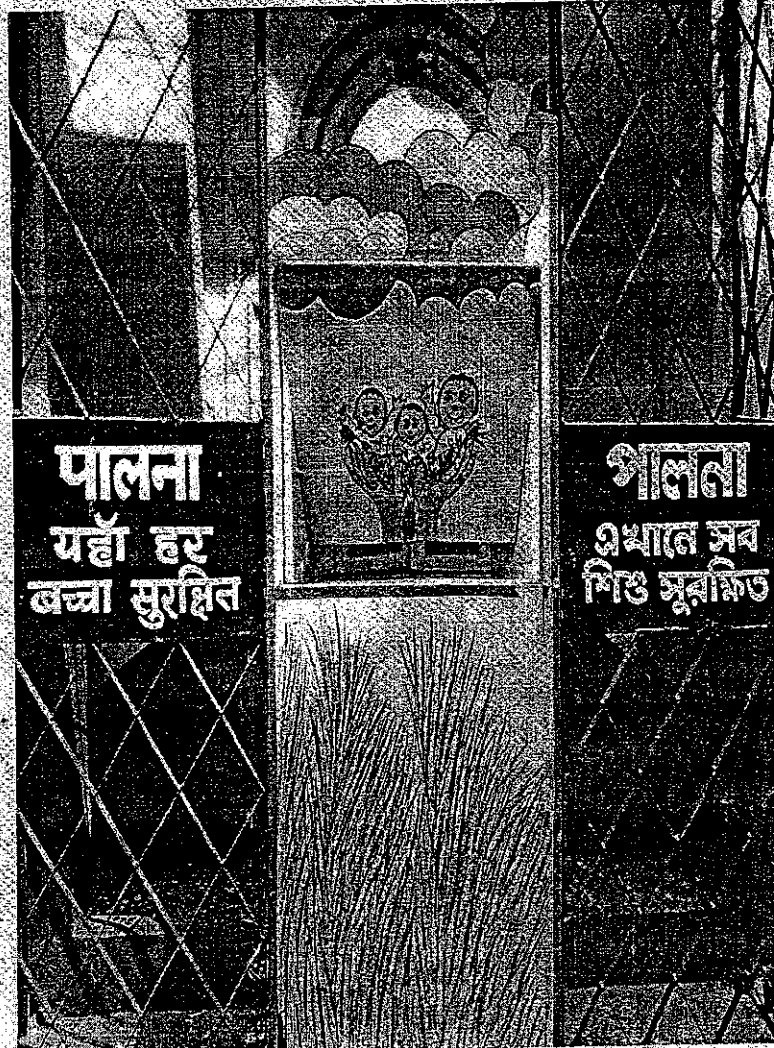 पालना
यहाँ हर
बच्चा सुरक्षित
পালনা
এখানে সব
শিশু সুরক্ষিত